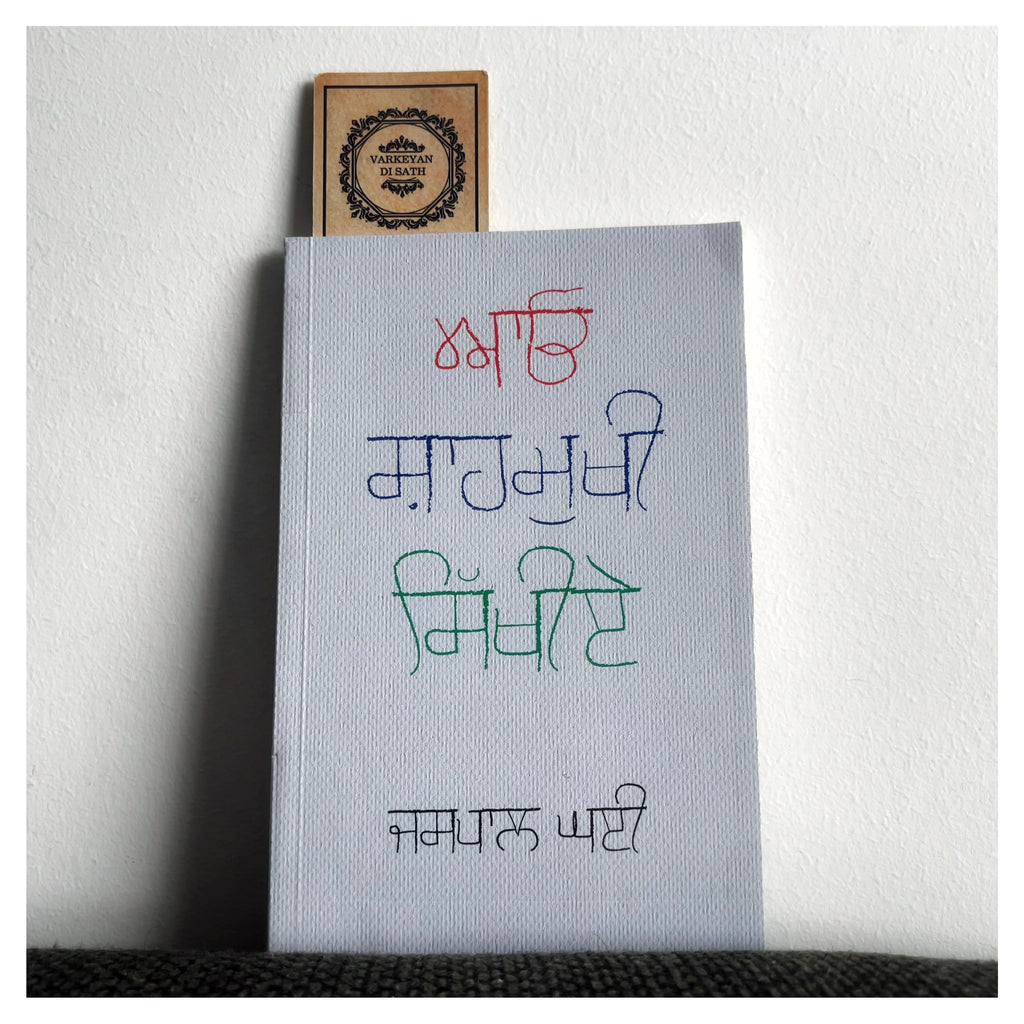 VARKEYAN
DI SATH
ਆਓ
ਸ਼ਾਹਮੁਖੀ
ਸਿੱਖੀਏ
ਜਸਪਾਲ ਘਈ